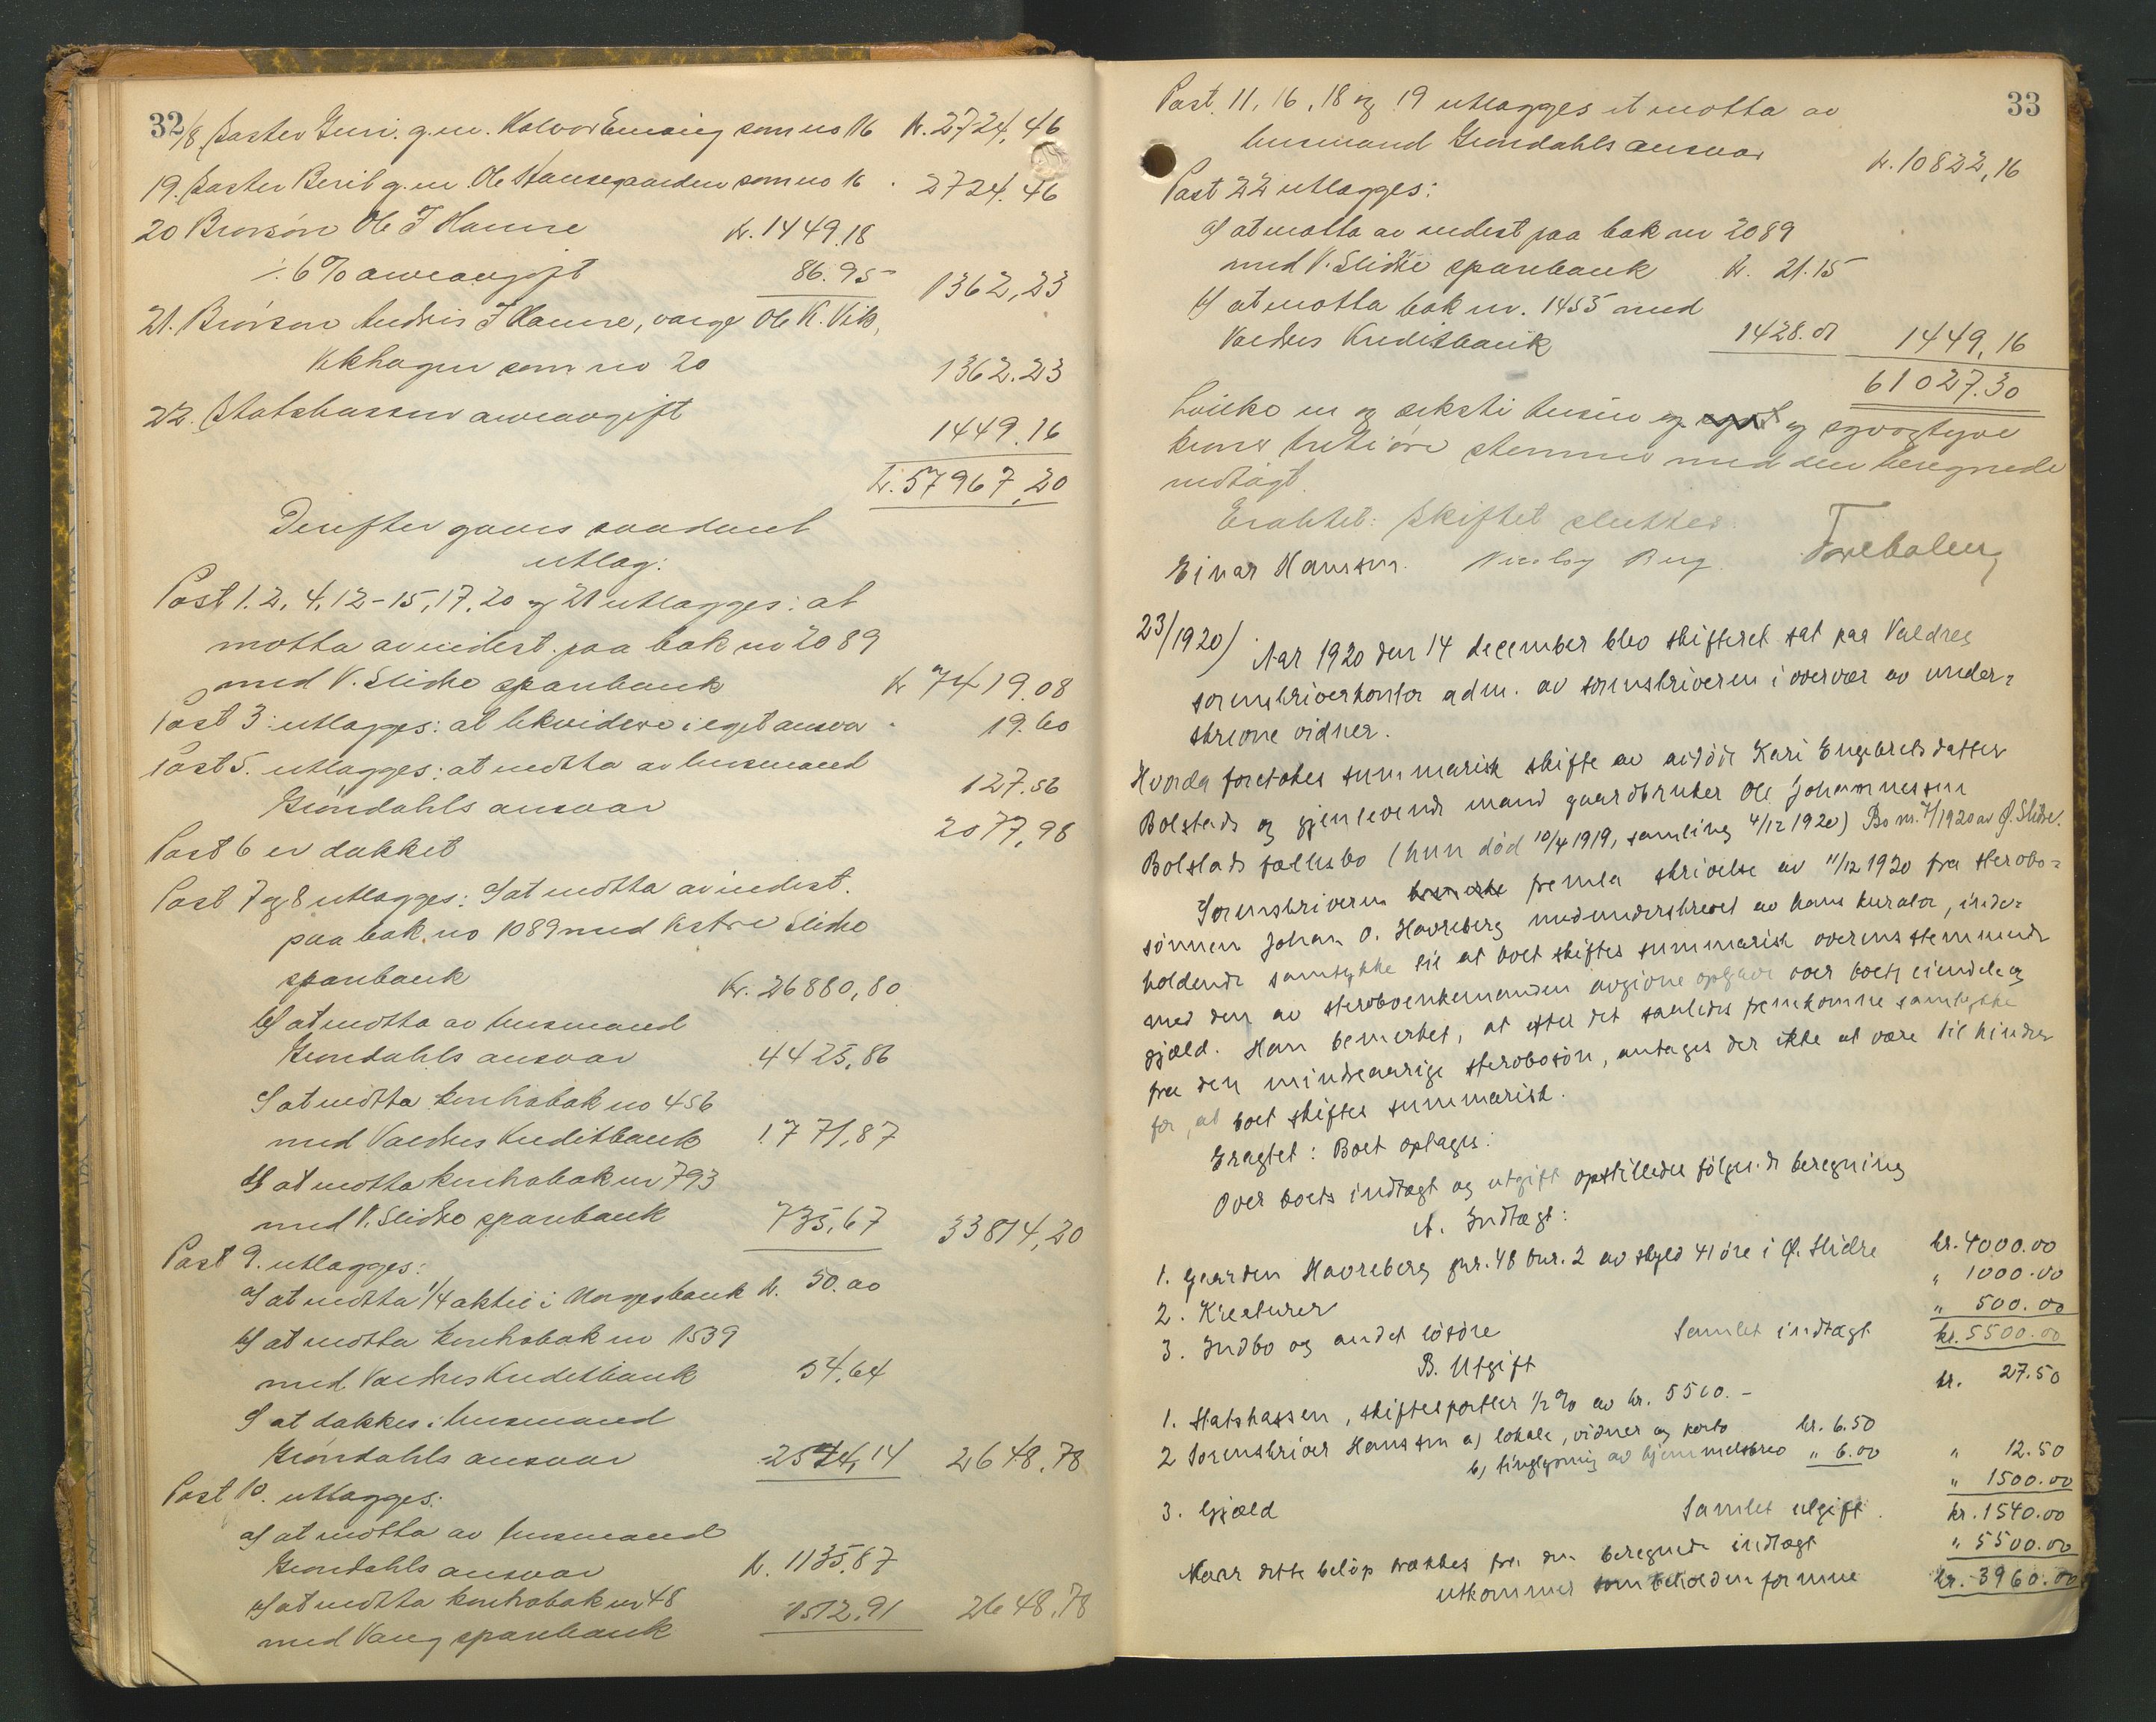 32
18. Søster Guri. g.m. Halvor Emaing som no 16 K. 2724,46
19. Søster Berit g.m Ole Hansegaarden som no 16 . 2724.46
20 Brorsøn Ole T Hamre K. 1449.18
÷ 6% arveavgift 86.95 1362,23
21. Brorsøn Andris T Hamre, verge Ole K. Vik,
Vikhagen som no 20 1362.23
22. Statskassen arveavgift 1449.16
K. 57967,20
Derefter gaves saadant
utlæg:
Post 1. 2, 4, 12-15, 17, 20 og 21 utlægges: at
motta av indest. paa bok no 2089
med V. Slidre sparebank K 7419.08
Post 3 utlægges: at likvidere i eget ansvar . 19.60
Post 5. utlægges: at motta av lensmand
Grøndahls ansvar 127.56
Post 6 er dækket 2077,98
Post 7 og 8 utlægges: a) at motta av indest.
paa bok no 1089 med Vestre Slidre
sparebank Kr. 26880,80
b) at motta av lensmand
Grøndahls ansvar 4425,86
c) at motta kontrabok no 456
med Valdres Kreditbank 1771,87
d) at motta kontrabok nr 793
med V. Slidre sparebank 735,67 33814,20
Post 9. utlægges:
a) at motta 1/4 aktie i Norgesbank K. 50.00
b) at motta kontrabok no 1539
med Valdres Kreditbank 54,64
c) at dækkes i lensmand
Grøndahls ansvar 2544,14 2648,78
Post 10. utlægges:
a) at motta av lensmand
Grøndahls ansvar K. 1135,87
b) at motta kontrabok nr 48
med Vang sparebank 1512,91 2648,78
33
Post. 11, 16, 18 og 19 utlægges at motta av
lensmand Grøndahls ansvar K. 10822,16
Post 22 utlægges:
a) at motta av indest paa bok nr 2089
med V. Slidre sparebank K. 21.15
b) at motta bok nr. 1455 med
Valdres Kreditbank 1428.01 1449,16
61027.30
hvilke en og seksti tusin og og syvogtyve
kroner tretti øre stemmer med den beregnede
indtægt.
Eragtet: Skiftet sluttes.
Einar Hansson. Nicolay Berg.
23/1920) Aar 1920 den 14 december blev skifteret sat paa Valdres
sorenskriverkontor adm. av sorenskriveren i overvær av under-
skrevne vidner.
Hvorda foretokes summarisk skifte av avdøde Kari Engebretsdatter
Bolstads og gjenlevende mand gaardbruker Ole Johannessen
Bolstads fællesbo (hun død 10/4 1919, samling 4/12 1920) Bo nr. 7/1920 av Ø. Slidre.
Sorenskriveren fremla skrivelse av 11/12 1920 fra sterbo-
sønnen Johan O. Havreberg medunderskrevet av hans kurator, inde-
holdende samtykke til at boet skiftes summarisk overensstemmende
med den av sterboenkemanden avgivne opgave over boets eiendele og
gjæld. Han bemerket, at efter det saaledes fremkomne samtykke
fra den mindreaarige sterbosøn, antages der ikke at være til hinder
for, at boet skiftes summarisk.
Eragtet: Boet optages:
Over boets indtægt og utgift opstilledes følgende beregning
A. Indtægt:
1. Gaarden Havreberg gnr. 48 bnr. 2 av skyld 41 øre i Ø. Slidre kr. 4000.00
2. Kreaturer " 1000.00
3. Indbo og andet løsøre " 500.00
Samlet indtægt kr. 5500.00
B. Utgift
1. Statskassen, skiftesportler 1/2 % av kr. 5500.- kr. 27.50
2 Sorenskriver Hansson a) lokale, vidner og porto kr. 6.50
b) tinglysning av hjemmelsbrev " 6.00 " 12.50
3. Gjæld " 1500.00
Samlet utgift. kr. 1540.00
Naar dette beløp trækkes fra den beregnede indtægt " 5500.00
utkommer som beholden formue kr. 3960.00